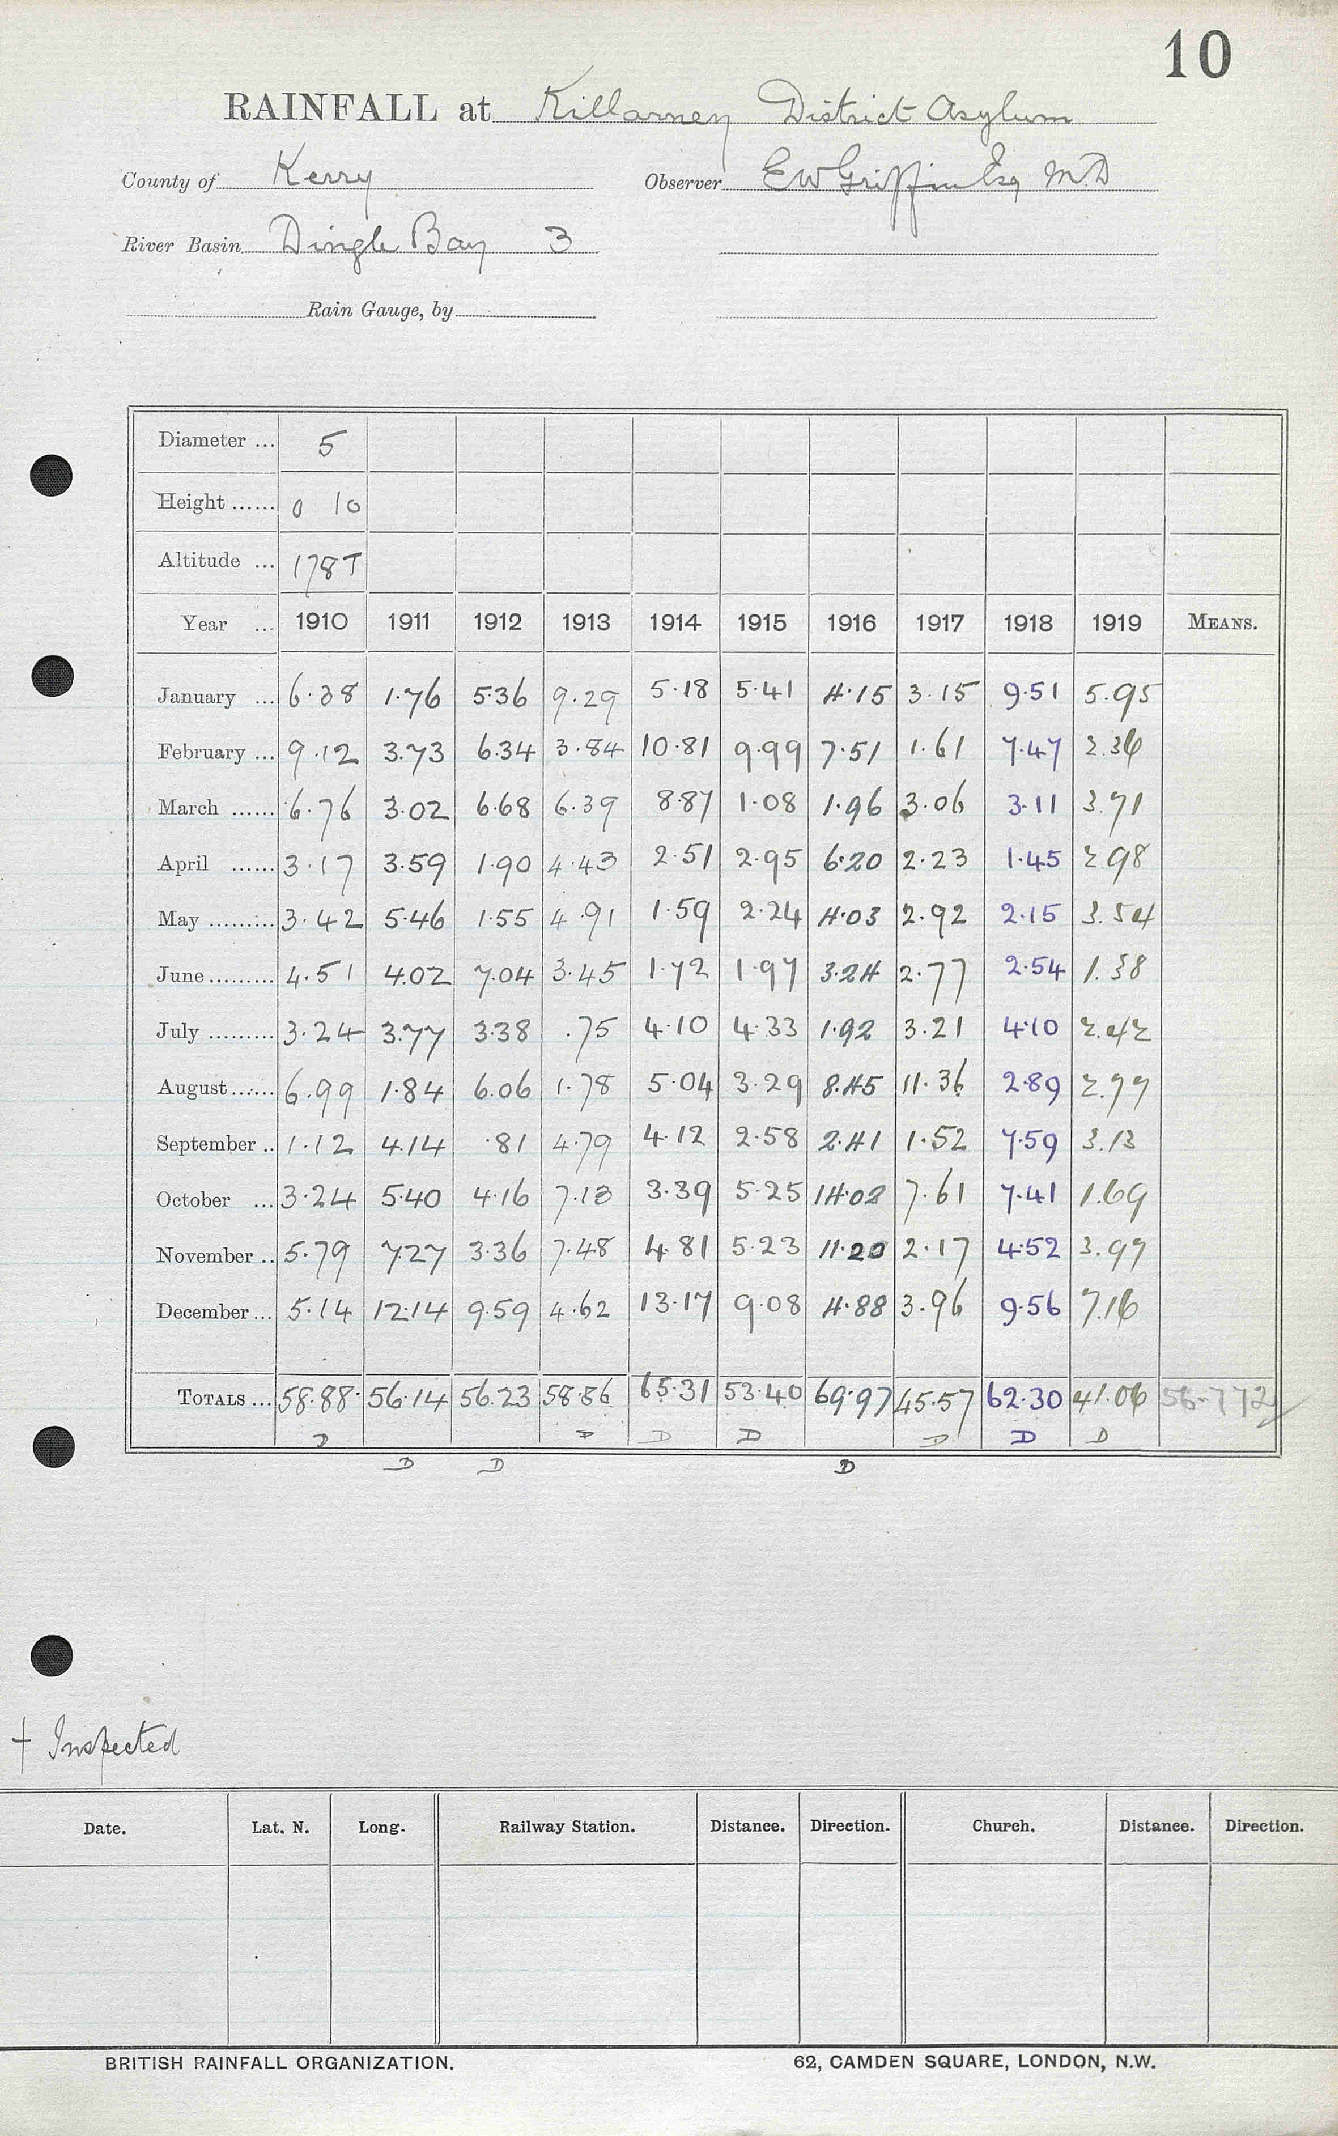 10
RAINFALL at Killarney District Asylum
County of Kerry Observer E W Griffin Esq M.D
River Basin Dingle Bay 3
Rain Gauge, by
Diameter ... 5
Height ...... 0 10
Altitude ... 178 T
Year ... 1910 1911 1912 1913 1914 1915 1916 1917 1918 1919 MEANS.
January ... 6.38 1.76 5.36 9.29 5.18 5.41 4.15 3.15 9.51 5.95
February ... 9.12 3.73 6.34 3.84 10.81 9.99 7.51 1.61 7.47 2.36
March ...... 6.76 3.02 6.68 6.39 8.87 1.08 1.96 3.06 3.11 3.71
April ...... 3.17 3.59 1.90 4.43 2.51 2.95 6.20 2.23 1.45 2.98
May ......... 3.42 5.46 1.55 4.91 1.59 2.24 4.03 2.92 2.15 3.54
June ......... 4.51 4.02 7.04 3.45 1.72 1.97 3.24 2.77 2.54 1.38
July ......... 3.24 3.77 3.38 .75 4.10 4.33 1.92 3.21 4.10 2.42
August ...... 6.99 1.84 6.06 1.78 5.04 3.29 8.45 11.36 2.89 2.77
September .. 1.12 4.14 .81 4.79 4.12 2.58 2.41 1.52 7.59 3.13
October ... 3.24 5.40 4.16 7.13 3.39 5.25 14.02 7.61 7.41 1.69
November .. 5.79 7.27 3.36 7.48 4.81 5.23 11.20 2.17 4.52 3.97
December ... 5.14 12.14 9.59 4.62 13.17 9.08 4.88 3.96 9.56 7.16
TOTALS ... 58.88 56.14 56.23 58.86 65.31 53.40 69.97 45.57 62.30 41.06 56.772
D D D D D D D
D D D
+ Inspected
Date. Lat. N. Long. Railway Station. Distance. Direction. Church. Distance. Direction.
BRITISH RAINFALL ORGANIZATION. 62, CAMDEN SQUARE, LONDON, N.W.